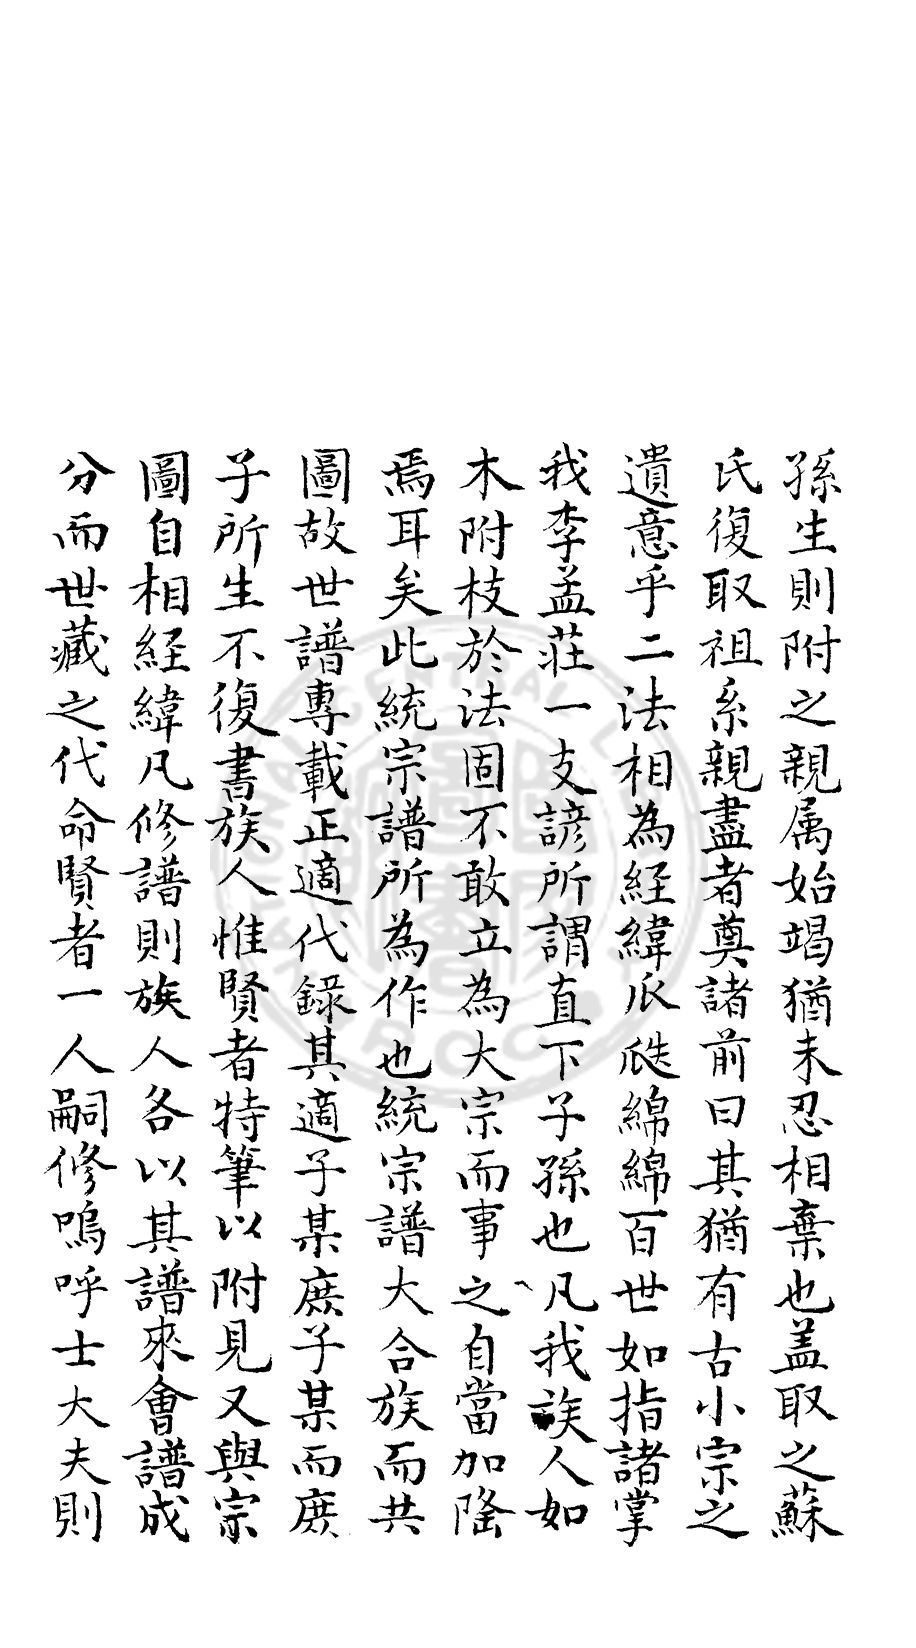 孫生則附之親属始竭猶未忍相棄也盖取之蘇
氏復取祖系親盡者奠諸前曰其猶有古小宗之
遺意乎二法相為経緯瓜瓞綿綿百世如指諸掌
我李孟莊一支諺所謂直下子孫也凡我族人如
木附枝於法固不敢立為大宗而事之自當加隆
焉耳矣此統宗譜所為作也統宗譜大合族而共
圖故世譜專載正適代錄其適子某庶子某而庶
子所生不復書族人惟賢者特筆以附見又與宗
圖自相経緯凡修譜則族人各以其譜來會譜成
分而世藏之代命賢者一人嗣修嗚呼士大夫則
NATIONAL CENTRAL LIBRARY
ROC